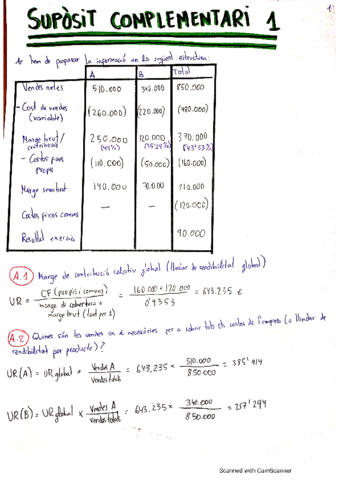 SUPÒSIT COMPLEMENTARI 1
1r hem de preparar la informació en la següent estructura:
A B Total
Vendes netes 510.000 340.000 850.000
- Cost de vendes (variable) (260.000) (220.000) (480.000)
Marge brut/ contribució 250.000 120.000 370.000
(49%) (35'29%) (43'53%)
- Costos fixos propis (110.000) (50.000) (160.000)
Marge semibrut 140.000 70.000 210.000
Costos fixos comuns — — (120.000)
Resultat exercici 90.000
A.1) Marge de contribució relatiu global (llindar de rendibilitat global)
UR = CF (propis i comuns) / marge de cobertura o marge brut (tant per 1) = 160.000 + 120.000 / 0'4353 = 643.235 €
A.2) Quines són les vendes en € necessàries per a cobrir tots els costos de l'empresa (o llindar de
rendibilitat per producte)?
UR(A) = UR global × Vendes A / Vendes totals = 643.235 × 510.000 / 850.000 = 385'914
UR(B) = UR global × Vendes A / Vendes totals = 643.235 × 340.000 / 850.000 = 257'294
Scanned with CamScanner